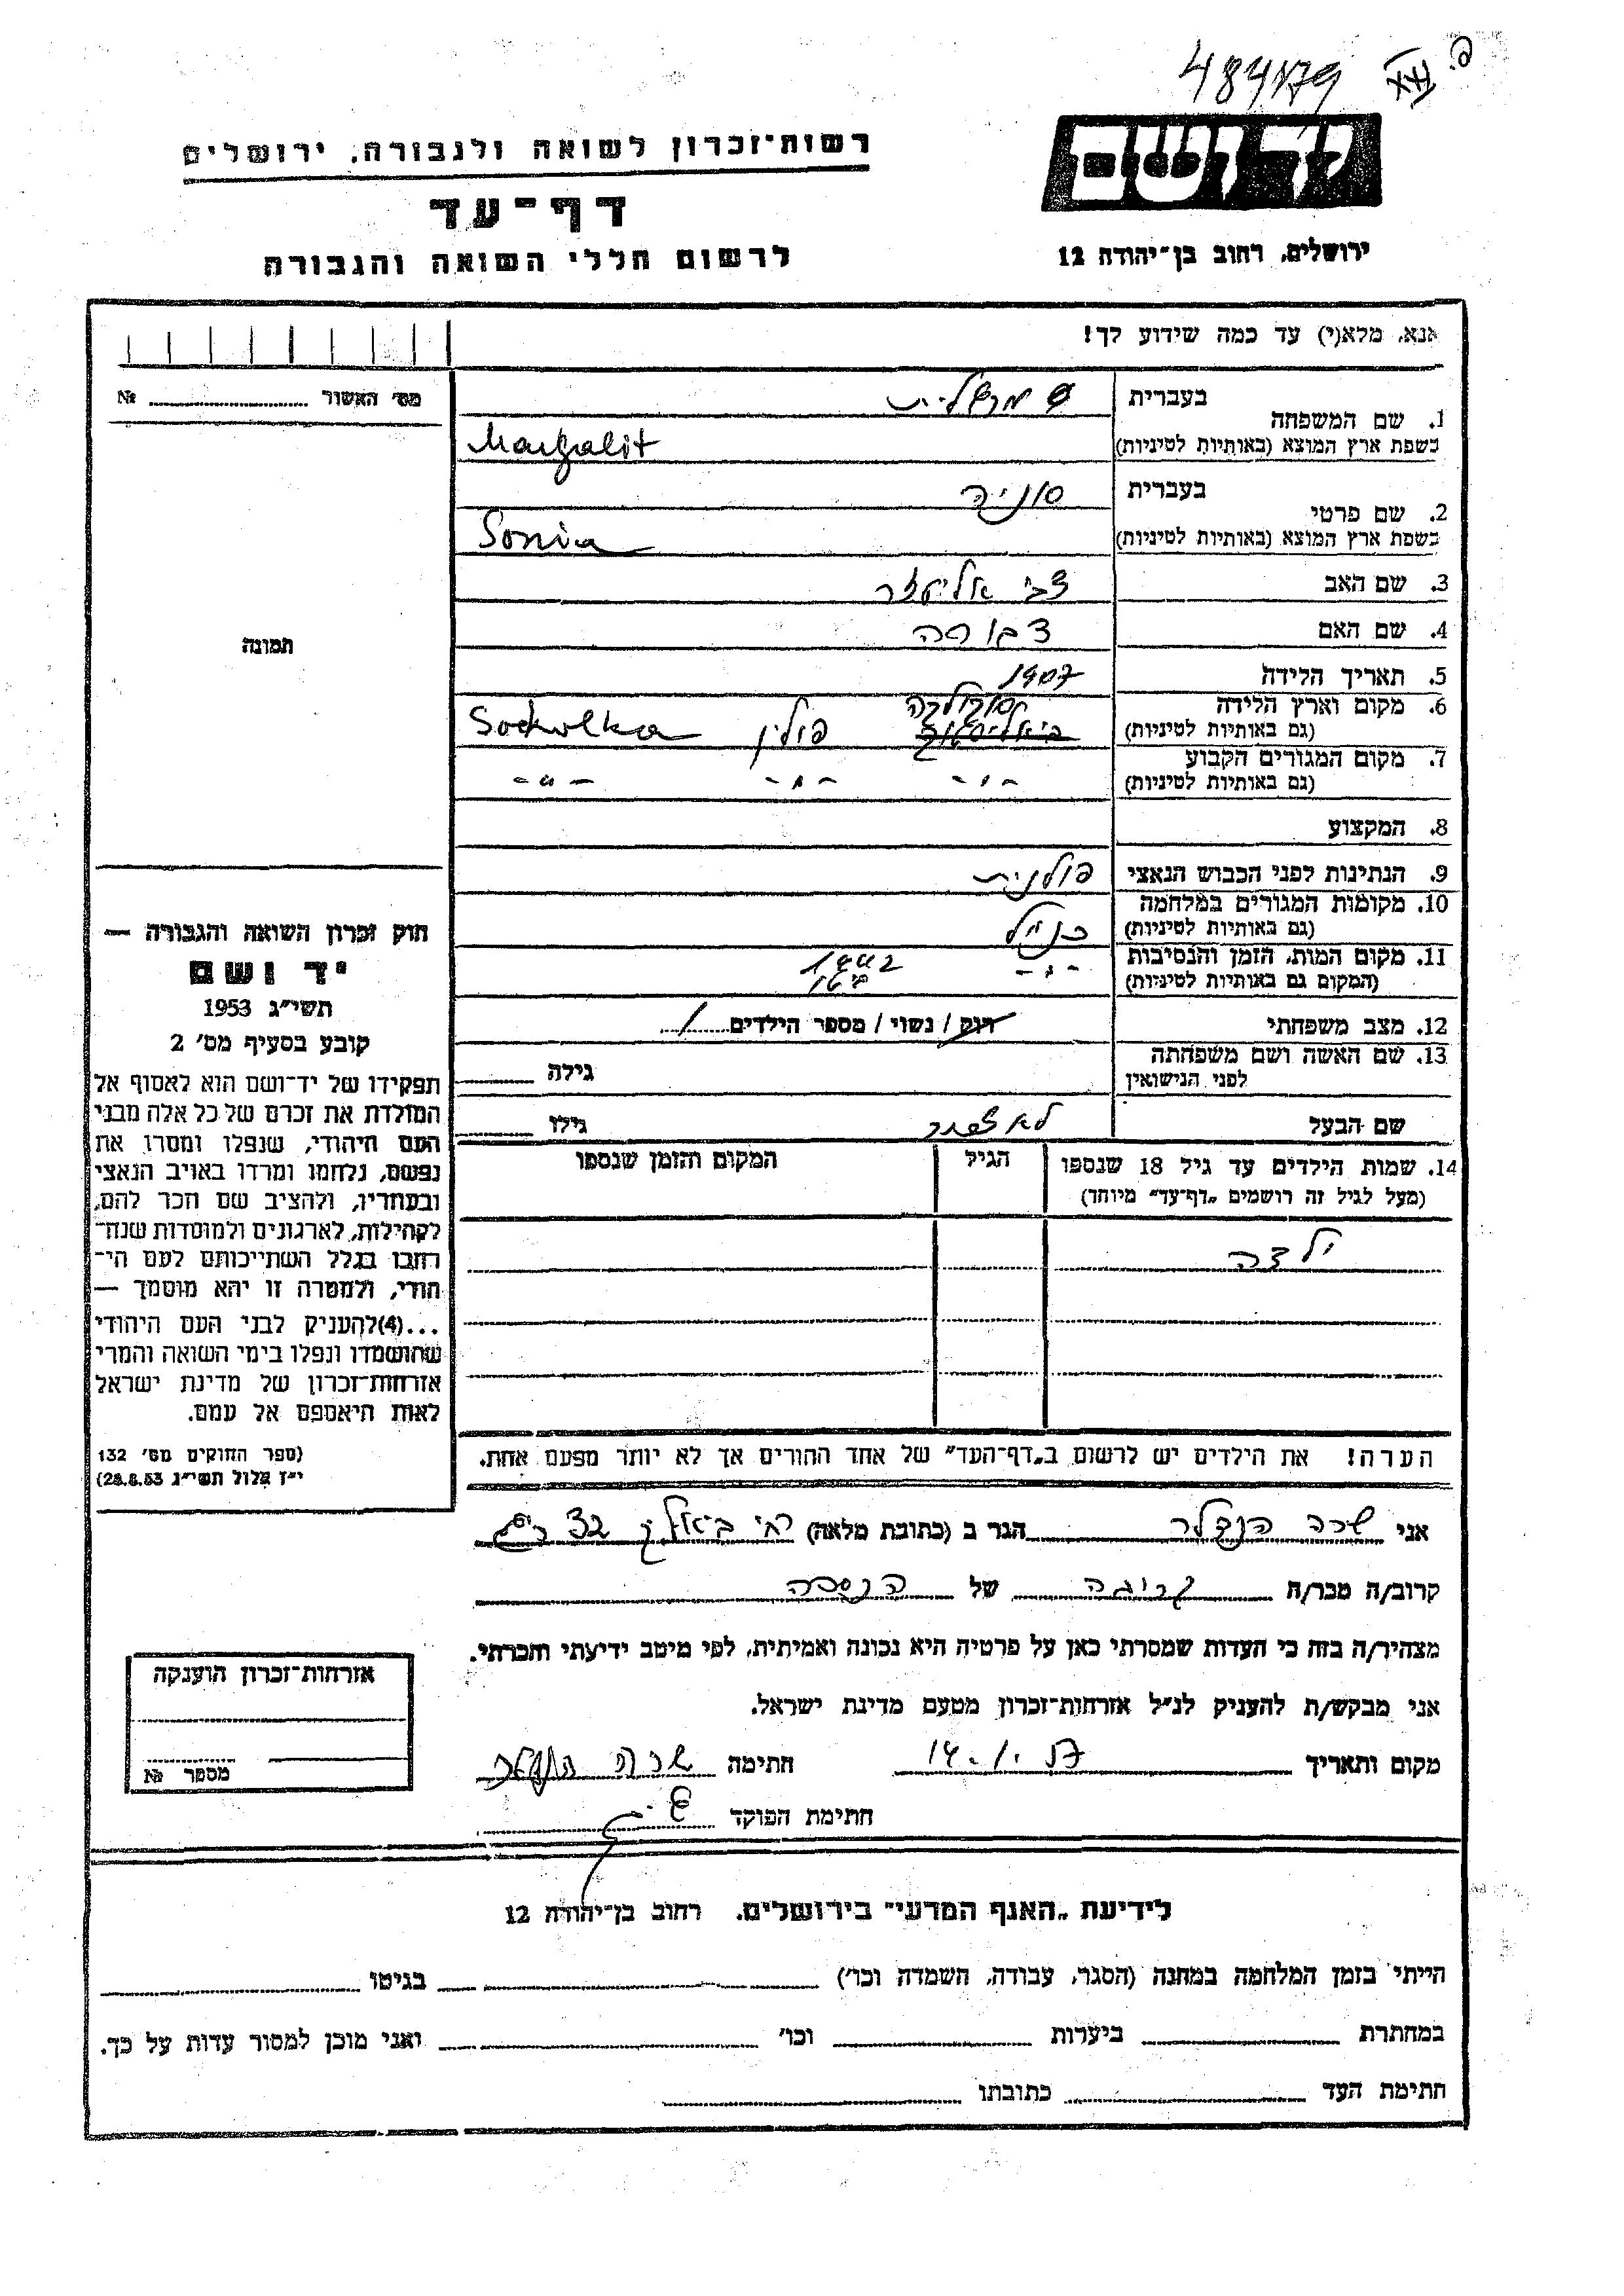 484179
רשות־זכרון לשואה ולגבורה, ירושלים
יד ושם
דף־עד
לרשום חללי השואה והגבורה
ירושלים, רחוב בן־יהודה 12
אנא, מלא(י) עד כמה שידוע לך!
מס׳ האשור № 
1. שם המשפחה
בעברית מרגלית
בשפת ארץ המוצא (באותיות לטיניות) Margalit
2. שם פרטי
בעברית סוניה
בשפת ארץ המוצא (באותיות לטיניות) Sonia
3. שם האב צבי אליעזר
4. שם האם דבורה
תמונה
5. תאריך הלידה 1907
6. מקום וארץ הלידה סוקולקה
(גם באותיות לטיניות) ביאליסטוק פולין Sockolka
7. מקום המגורים הקבוע
(גם באותיות לטיניות) -״- -״- -״-
8. המקצוע
9. הנתינות לפני הכבוש הנאצי פולנית
10. מקומות המגורים במלחמה
(גם באותיות לטיניות) כנ״ל
11. מקום המות, הזמן והנסיבות
(המקום גם באותיות לטיניות) -״- 1942
12. מצב משפחתי רוק / נשוי / מספר הילדים 1
13. שם האשה ושם משפחתה
לפני הנישואין גילה
שם הבעל גילו
14. שמות הילדים עד גיל 18 שנספו
(מעל לגיל זה רושמים „דף־עד״ מיוחד)
הגיל
המקום והזמן שנספו
ילדה
חוק זכרון השואה והגבורה —
יד ושם
תשי״ג 1953
קובע בסעיף מס׳ 2
תפקידו של יד־ושם הוא לאסוף אל
המולדת את זכרם של כל אלה מבני
העם היהודי, שנפלו ומסרו את
נפשם, נלחמו ומרדו באויב הנאצי
ובעוזריו, ולהציב שם וזכר להם,
לקהילות, לארגונים ולמוסדות שנח־
רבו בגלל השתייכותם לעם הי־
הודי, ולמטרה זו יהא מוסמך —
...(4)להעניק לבני העם היהודי
שהושמדו ונפלו בימי השואה והמרי
אזרחות־זכרון של מדינת ישראל
לאות היאספם אל עמם.
(ספר החוקים מס׳ 132
י״ז אלול תשי״ג 28.8.53)
הערה! את הילדים יש לרשום ב„דף־העד״ של אחד ההורים אך לא יותר מפעם אחת.
אני שרה הנדלר הגר ב (כתובת מלאה) רח׳ ביאליק 32
קרוב/ה מכר/ה קרובה של הנספה
מצהיר/ה בזה כי העדות שמסרתי כאן על פרטיה היא נכונה ואמיתית, לפי מיטב ידיעתי והכרתי.
אני מבקש/ת להעניק לנ״ל אזרחות־זכרון מטעם מדינת ישראל.
מקום ותאריך 14.1.57 חתימה שרה הנדלר
חתימת הפוקד
אזרחות־זכרון הוענקה
מספר №
לידיעת „האגף המדעי״ בירושלים. רחוב בן־יהודה 12
הייתי בזמן המלחמה במחנה (הסגר, עבודה, השמדה וכו׳) בגיטו
במחתרת ביערות וכו׳ ואני מוכן למסור עדות על כך.
חתימת העד כתובתו